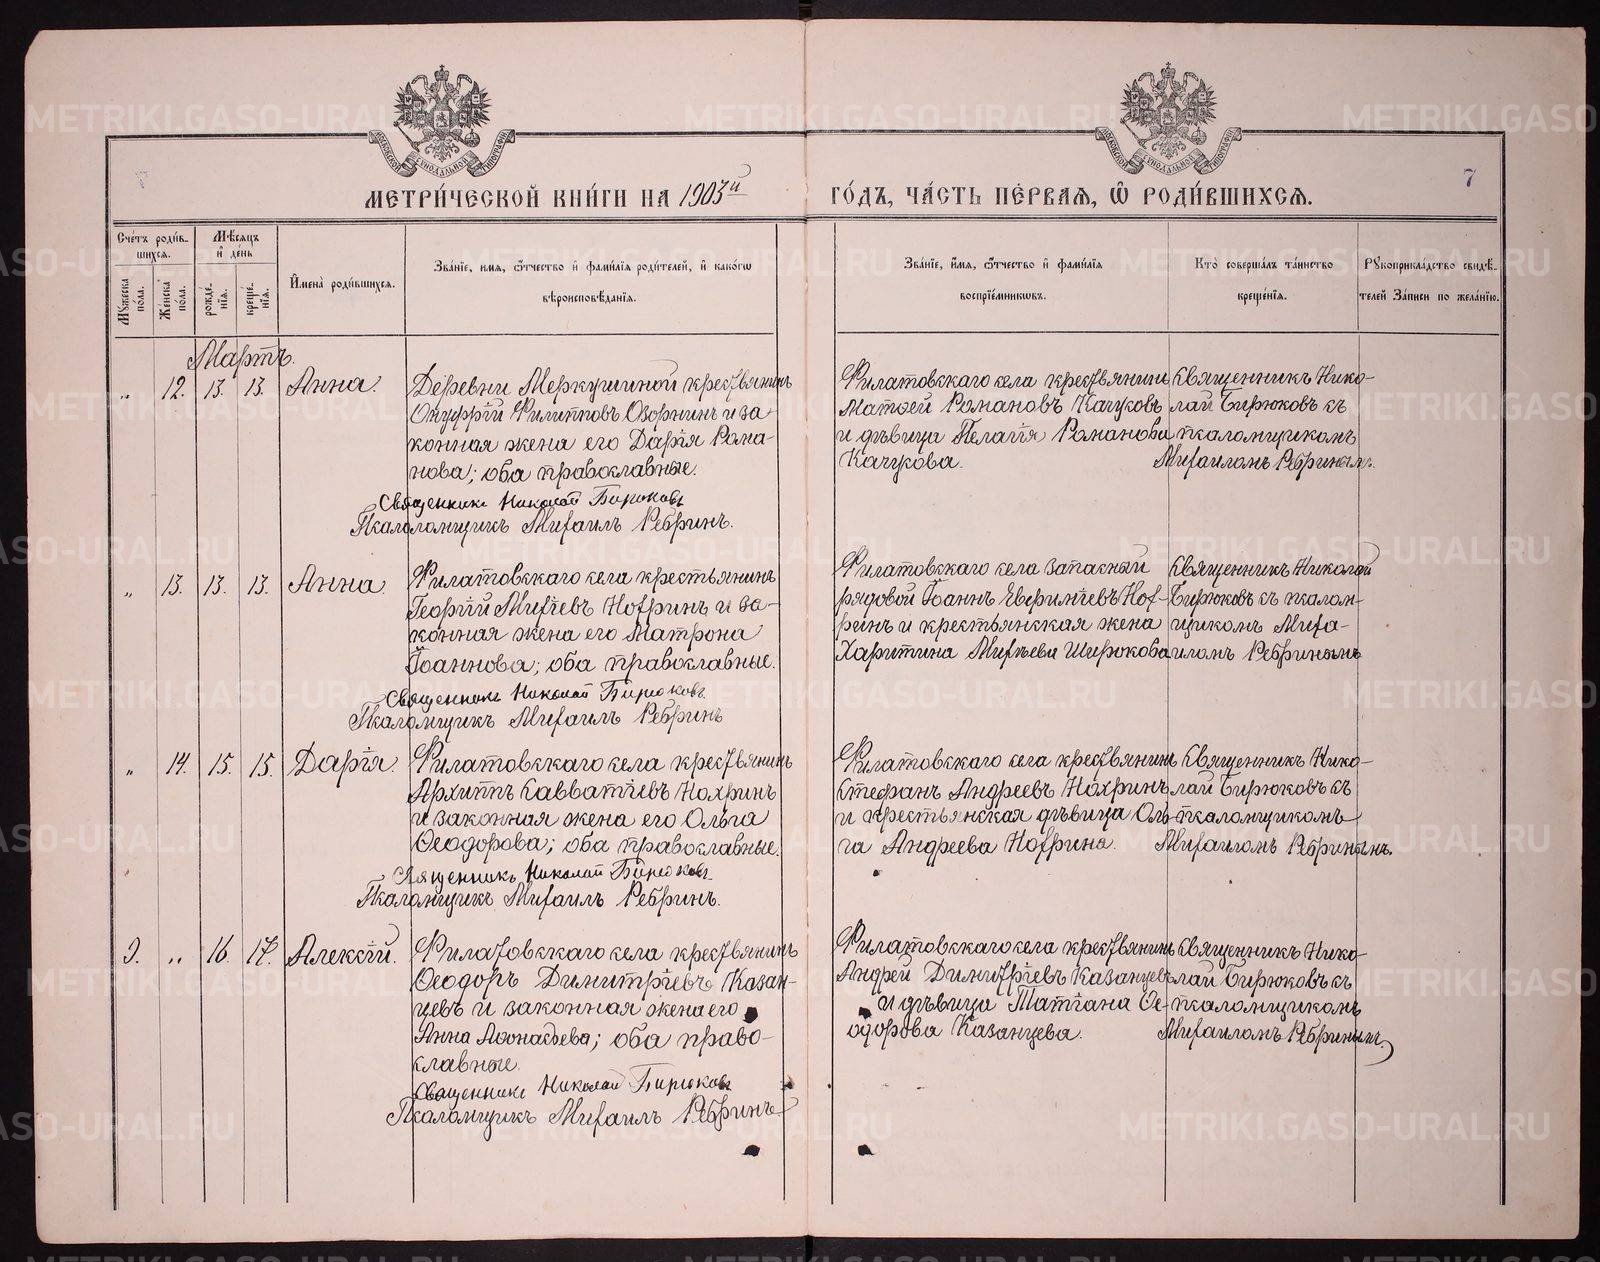 7
МЕТРИ́ЧЕСКОЙ КНИ́ГИ НА 1903й ГО́ДЪ, ЧА́СТЬ ПЕ́РВАЯ, Ѡ РОДИ́ВШИХСЯ.
Сче́тъ роди́в-
шихся.
Му́жеска
по́ла.
Же́нска
по́ла.
Мѣ́сяцъ
и҆ де́нь
рожде́-
нїѧ.
креще́-
нїѧ.
И҆мена̀ роди́вшихся.
Зва́нїе, имѧ, ѻтчество и҆ фами́лїѧ роди́телей, и҆ како́гѡ
вѣроисповѣ́данїѧ.
Зва́нїе, и҆́мѧ, ѻтчество и҆ фами́лїѧ
воспрїе́мниковъ.
Кто̀ соверша́лъ та́инство
креще́нїѧ.
Рукоприкла́дство свидѣ́-
телей за́писи по жела́нїю.
Мартъ.
„ 12. 13. 13. Анна.
Деревни Меркушиной крестьянинъ
Онуфрій Филипповъ Озорнинъ и за-
конная жена его Дарія Рома-
нова; оба православные.
Священникъ Николай Бирюковъ
Псаломщикъ Михаилъ Ребринъ.
Филатовскаго села крестьянинъ
Матѳей Романовъ Качуковъ
и дѣвица Пелагія Романова
Качукова.
Священникъ Нико-
лай Бирюковъ съ
псаломщикомъ
Михаиломъ Ребринымъ.
„ 13. 13. 13. Анна.
Филатовскаго села крестьянинъ
Георгій Михѣевъ Нохринъ и за-
конная жена его Матрона
Іоаннова; оба православные.
Священникъ Николай Бирюковъ
Псаломщикъ Михаилъ Ребринъ
Филатовскаго села запасный
рядовой Іоаннъ Евфиміевъ Нох-
ринъ и крестьянская жена
Харитина Михѣева Широкова
Священникъ Николай
Бирюковъ съ псалом-
щикомъ Миха-
иломъ Ребринымъ
„ 14. 15. 15. Дарія.
Филатовскаго села крестьянинъ
Архиппъ Савватіевъ Нохринъ
и законная жена его Ольга
Ѳеодорова; оба православные.
Священникъ Николай Бирюковъ.
Псаломщикъ Михаилъ Ребринъ.
Филатовскаго села крестьянинъ
Стефанъ Андреевъ Нохринъ
и крестьянская дѣвица Оль-
га Андреева Нохрина.
Священникъ Нико-
лай Бирюковъ съ
псаломщикомъ
Михаиломъ Ребринымъ.
9. „ 16. 17. Алексій.
Филатовскаго села крестьянинъ
Ѳеодоръ Димитріевъ Казан-
цевъ и законная жена его
Анна Аѳонасьева; оба право-
славные.
Священникъ Николай Бирюковъ
Псаломщикъ Михаилъ Ребринъ
Филатовскаго села крестьянинъ
Андрей Димитріевъ Казанцевъ
и дѣвица Татіана Ѳе-
одорова Казанцева.
Священникъ Нико-
лай Бирюковъ съ
псаломщикомъ
Михаиломъ Ребринымъ.
METRIKI.GASO-URAL.RU